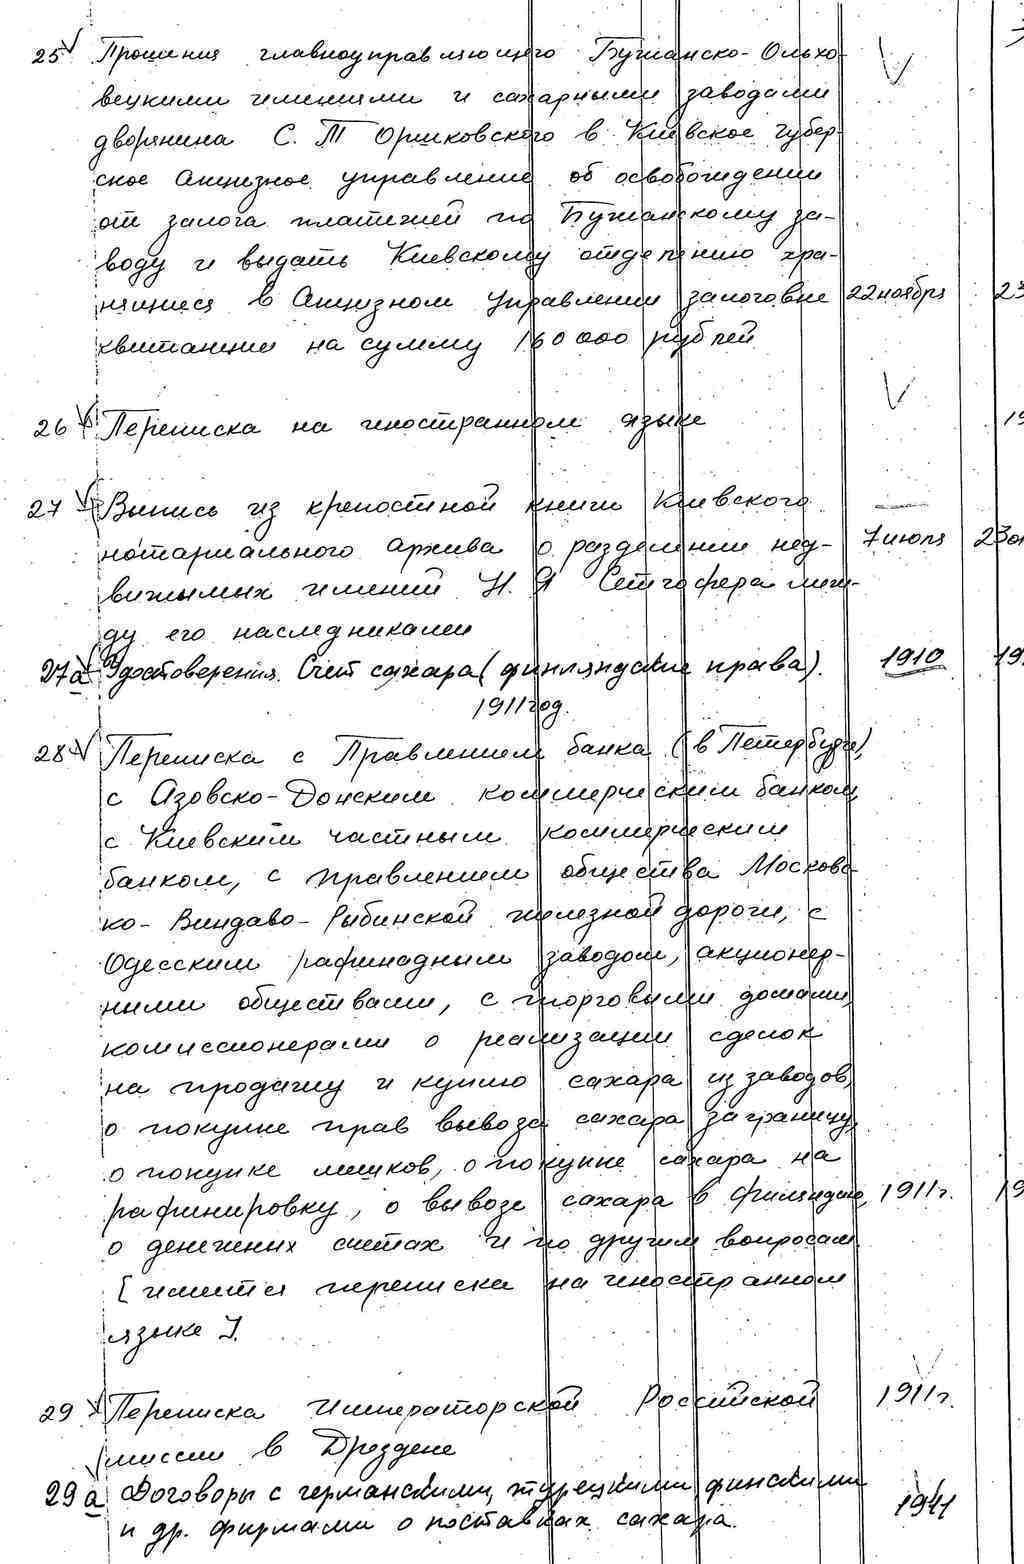 25 Прошения главноуправляющего Бужанско-Ольхо-
вецкими имениями и сахарными заводами
дворянина С. Т Оришковского в Киевское губер-
ское Акцизное управление об освобождении
от залога платежей по Бужанскому за-
воду и выдать Киевскому отделению хра-
нящиеся в Акцизном Управлении залоговые 22 ноября 23
квитанции на сумму 160 000 рублей
26 Переписка на иностранном языке 19
27 Выпись из крепостной книги Киевского
нотариального архива о разделении нед- 7 июля 23
вижымых имений Н. Я Сетгофера меж-
ду его наследниками
27а Удостоверения. Счет сахара (финляндские права). 1910 19
1911 год.
28 Переписка с Правлением банка (в Петербурге),
с Азовско-Донским коммерческим банком,
с Киевским частным коммерческим
банком, с правлением общества Московс-
ко-Виндаво-Рыбинской железной дороги, с
Одесским рафинадным заводом, акционер-
ными обществами, с торговыми домами,
комиссионерами о реализации сделок
на продажу и куплю сахара из заводов,
о покупке прав вывоза сахара заграницу,
о покупке мешков, о покупке сахара на
рафинировку, о вывозе сахара в Филяндию, 1911г. 19
о денежных счетах и по другим вопросам
[имеется переписка на иностранном
языке].
29 Переписка Императорской Российской 1911г.
миссии в Дрездене
29а Договоры с германскими, турецкими, финскими
и др. фирмами о поставках сахара. 1911